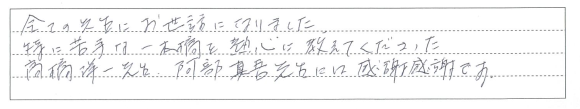 全ての先生にお世話になりました。
特に苦手な一本橋を熱心に教えてくださった
高橋洋一先生、阿部真吾先生には感謝感謝です。